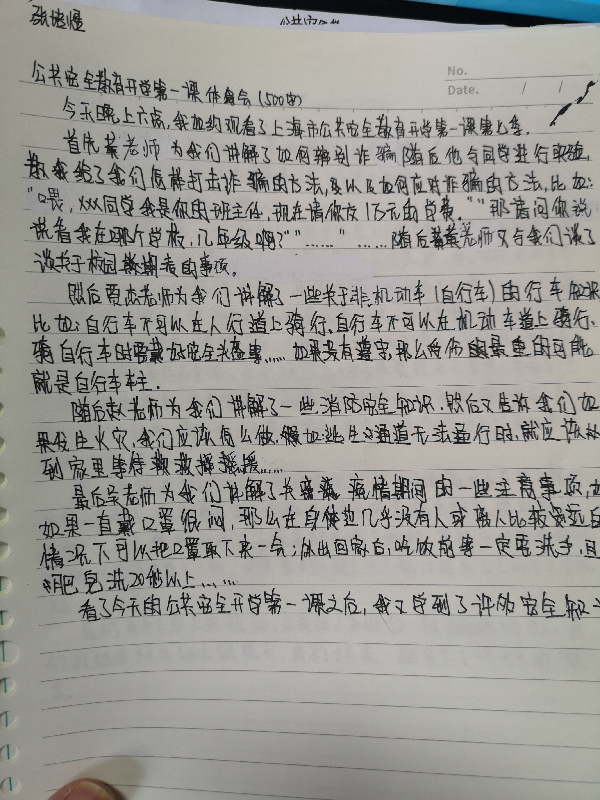 公共安全教育
No.
Date. / /
公共安全教育开学第一课体会(500字)
今天晚上六点,我如约观看了上海市公共安全教育开学第一课第七季。
首先黄老师为我们讲解了如何辨别诈骗随后他与同学进行实验,
教我给了我们怎样打击诈骗的方法,以及如何应对诈骗的方法,比如:
"喂,xxx同学我是你的班主任,现在请你交1万元的学费。""那请问你说
说看我在哪个学校,几年级啊?""……" ……随后黄老师又与我们谈了
谈关于校园的事项。
然后贾杰老师为我们讲解了一些关于非机动车(自行车)的行车知识
比如:自行车不可以在人行道上骑行、自行车不可以在机动车道上骑行、
骑自行车时要戴好安全头盔等……如果没有遵守,那么受伤的最重的可能
就是自行车车主。
随后赵老师为我们讲解了一些消防安全知识,然后又告诉我们如
果发生火灾,我们应该怎么做,假如逃生通道无法通行时,就应该
到家里等待救援……
最后吴老师为我们讲解了关疫情期间的一些注意事项,
如果一直戴口罩很闷,那么在身体边几乎没有人或离人比较远
情况下可以把口罩取下来一会;外出回家后,吃饭前等一定要洗手,
肥皂洗20秒以上……
看了今天的公共安全开学第一课之后,我又学到了许多安全知